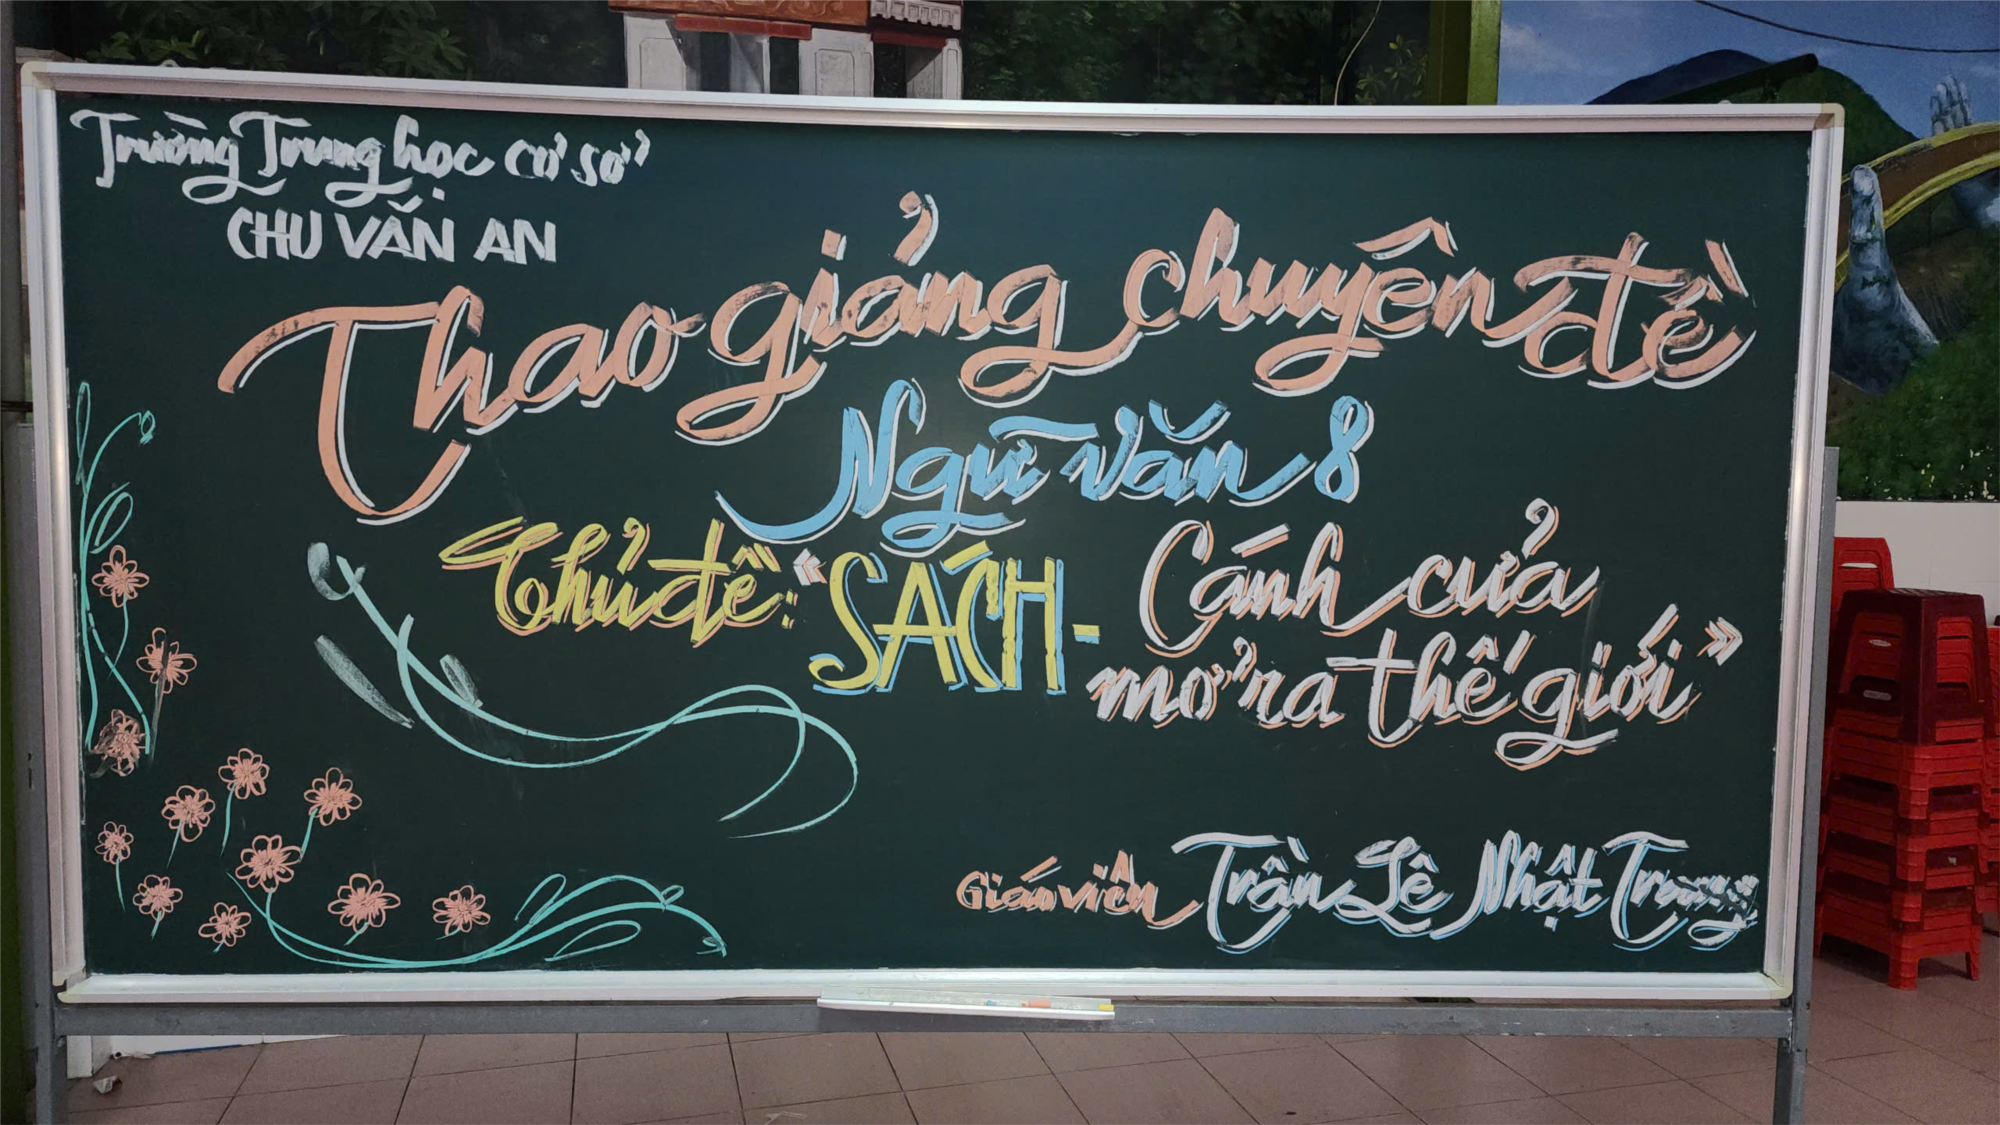 Trường Trung học cơ sở
CHU VĂN AN
Thao giảng chuyên đề
Ngữ văn 8
Chủ đề: "SÁCH - Cánh cửa
mở ra thế giới"
Giáo viên Trần Lê Nhật Trường